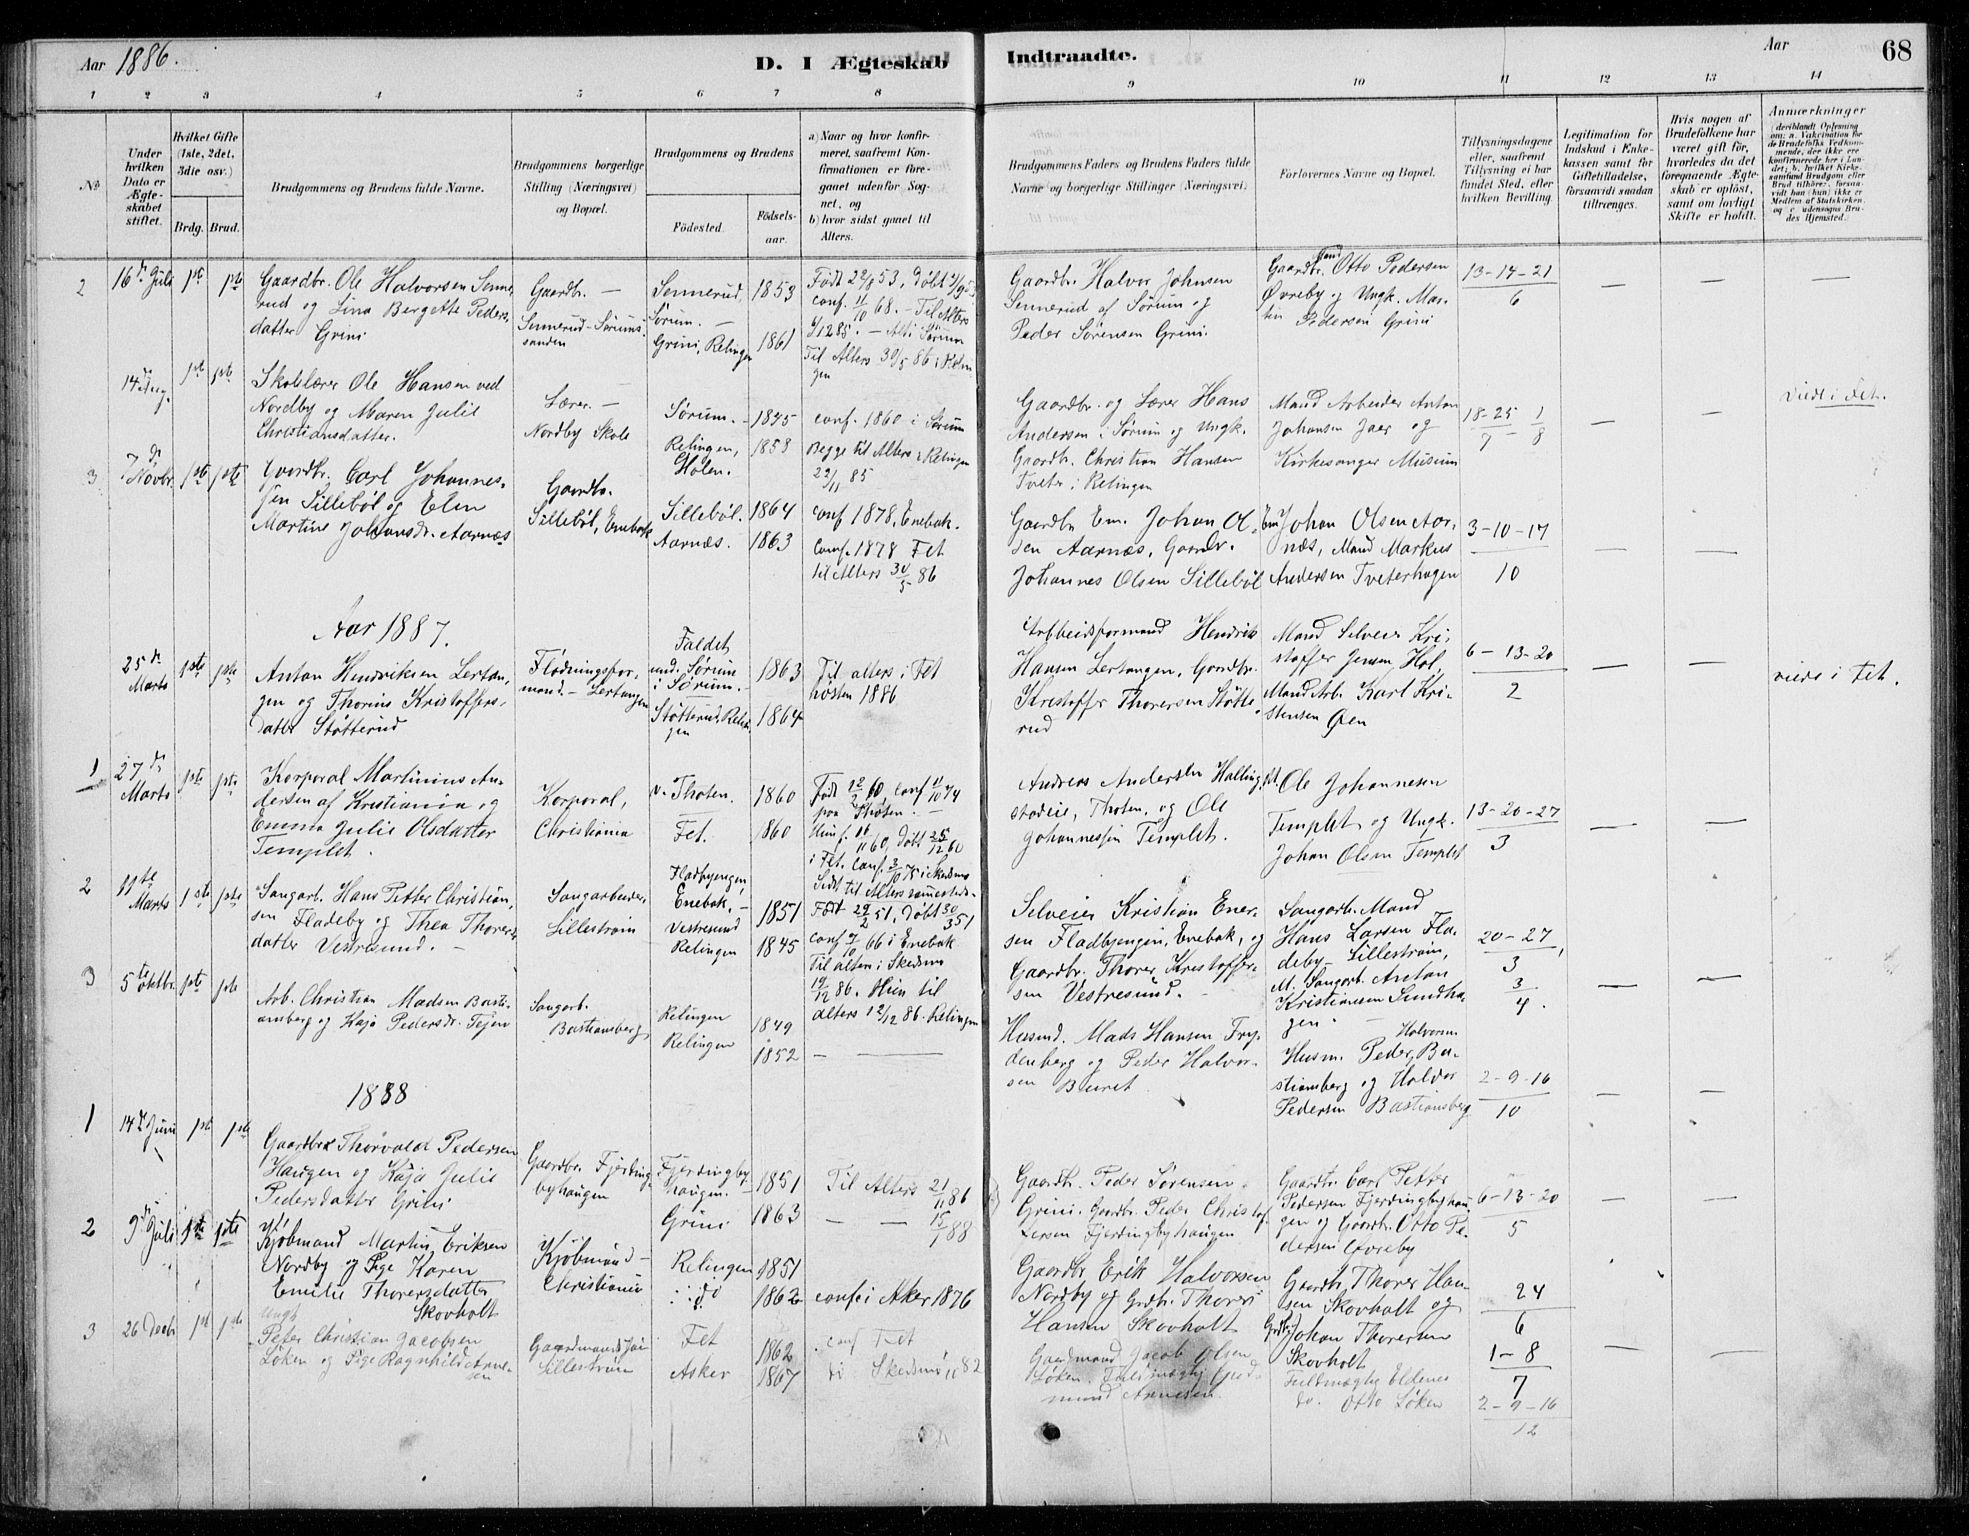 Aar 1886.
D. I Ægteskab Indtraadte.
Aar
68
1 2 3 4 5 6 7 8 9 10 11 12 13 14
No
Under hvilken Dato er Ægteskabet stiftet.
Hvilket Gifte (1ste, 2det, 3die osv.)
Brdg. Brud.
Brudgommens og Brudens fulde Navne.
Brudgommens borgerlige Stilling (Næringsvei) og Bopæl.
Brudgommens og Brudens
Födested.
Födselsaar.
a) Naar og hvor konfirmeret, saafremt Konfirmationen er foregaaet udenfor Sognet, og
b) hvor sidst gaaet til Alters.
Brudgommens Faders og Brudens Faders fulde Navne og borgerlige Stillinger (Næringsvei)
Forlovernes Navne og Bopæl.
Tillysningsdagene eller, saafremt Tillysning ei har fundet Sted, efter hvilken Bevilling.
Legitimation for Indskud i Enkekassen samt for Giftetilladelse, forsaavidt saadan tiltrænges.
Hvis nogen af Brudefolkene har været gift för, hvorledes da det foregaaende Ægteskab er oplöst, samt om lovligt Skifte er holdt.
Anmærkninger
2 16de Juli 1ste 1ste
Gaardbr. Ole Halvorsen Sennerud og Lina Bergette Pedersdatter Grini
Gaardbr. — Sennerud - Sørumssanden
Sennerud, Sørum. — 1853
Grini, Relingen 1861
conf. 11/10 68. — Til Alters
Til Alters 30/5 86 i Relingen
Gaardbr. Halvor Johnsen Sennerud af Sørum og Peder Sørensen Grini
Gaardbr. Otto Pedersen Øvreby og Ungk. Martin Pedersen Grini
13-14-21
6
14de Aug. 1ste 1ste
Skolelærer Ole Hansen ved Nordby og Maren Julie Christiansdatter.
Lærer. — Nordby Skole
Sørum. - 1845
Relingen, Holen. 1858
conf. 1860 i Sørum
Begge til Alters i Relingen 22/11 85
Gaardbr. og Lærer Hans Andersen i Sørum og Ungk. Gaardbr. Christian Hansen Tveter i Relingen
Mand Arbeider Anton Johansen Jaer og Kirkesanger Musium
18-25 1
7 8
Viede i Fet.
3 7de Novbr. 1ste 1ste
Gaardbr. Carl Johannessen Sillebøl og Elen Martine Johansdr. Aarnæs
Gaardbr. Sillebøl, Enebak
Sillebøl. 1864
Aarnæs. 1863
conf 1878, Enebak.
Conf. 1878 Fet
til Alters 30/5 86
Gaardbr Em. Johan Olsen Aarnæs, Gaardbr. Johannes Olsen Sillebøl
Em Johan Olsen Aarnæs, Mand Markus Andersen Tveterhagen
3-10-17
10
Aar 1887.
25de Marts 1ste 1ste
Anton Hendriksen Lertangen og Thorine Kristoffersdatter Støtterud
Flødningsformand. - Lertangen
Faldet und. Sørum i Sørum. — 1863
Støtterud, Relingen 1864
Til alters i Fet høsten 1886
Arbeidsformand Hendrik Hansen Lertangen, Gaardbr. Kristoffer Thorersen Støtterud
Mand Selveier Kristoffer Jensen Hol, Mand Arb. Karl Kristensen Øen
6-13-20
2
viede i Fet.
1 27de Marts 1ste 1ste
Korporal Martinius Andersen af Kristiania og Emma Julie Olsdatter Templet.
Korporal, Christiania
V. Thoten. 1860
Fet. 1860
Født 12/2 60, conf 11/10 74 paa Thoten. —
Hun f. 16/11 60, døbt 25/12 60 i Fet. Conf. 3/10 75 i Skedsmo
Sidst til Alters sammesteds.
Andreas Andersen Hallingstadeie, Thoten, og Ole Johannessen Templet.
Ole Johannesen Templet og Ungk. Johan Olsen Templet
13-20-27
3
2 11te Marts 1ste 1ste
Saugarb. Hans Petter Christiansen Fladeby og Thea Thorersdatter Vestresund. —
Saugarbeider Lillestrøm
Fladbyengen, Enebak, — 1851
Vestresund Relingen 1845
Født 29/2 51, Døbt 30/3 51
conf 7/10 66 i Enebak
Til alters i Skedsmo 19/12 86. Hun til alters 12/12 86. Relingen
Selveier Kristian Enersen Fladbyengen, Enebak, og Gaardbr. Thorer Kristoffersen Vestresund. —
Saugarb. Mand Hans Larsen Fladeby - Lillestrøm, M. Saugarb. Anton Kristiansen Sundhagen.
20-27,
3
3
4.
3 5te oktbr. 1ste 1ste
Arb. Christian Madsen Bastiansberg og Kaja Pedersdr. Tejen
Saugarb. Bastiansberg
Relingen 1849
Relingen 1852
Husmd. Mads Hansen Frydenberg og Peder Halvorsen Buret
Husm. Peder Halvorsen Bastiansberg og Halvor Pedersen Bastiansberg
2-9-16
10
1888
1 14de Juni 1ste 1ste
Gaardbr Thorvald Pedersen Haugen og Kaja Julie Pedersdatter Grini
Gaardbr. Fjerdingbyhaugen
Fjerdingbyhaugen. — 1851
Grini 1863
Til Alters 21/11 86
— — 15/1 88
Gaardb. Peder Sørensen Grini. Gaardbr. Peder Christofersen Fjerdingbyhaugen
Gaardbr Carl Petter Pedersen Fjerdingbyhaugen og Gaardbr. Otto Pedersen Øvreby
6-13-20
5
2 9de Juli 1ste 1ste
Kjøbmand Martin Eriksen Nordby og Pige Karen Emilie Thorersdatter Skovholt
Kjøbmand - Christiania
Relingen 1851
do 1862
conf. i Aker 1876
Gaardbr Erik Halvorsen Nordby og Grdbr. Thorer Hansen Skovholt
Gaardbr. Thorer Hansen Skovholt og Grdbr. Johan Thoresen Skovholt
24
6
1-8
7
3 26 Decbr 1st 1ste
Ungk. Peter Christian Jacobsen Løken og Pige Ragnhild Arnesen
Lillestrøm
Fet 1862
Asker 1867
conf Fet
do Skedsmo 82
Gaardmand Jacob Olsen Løken. Fuldmægtig Gudmund Arnesen.
Fuldmægtig Eldenes
do. Otto Løken
2-9-16
12